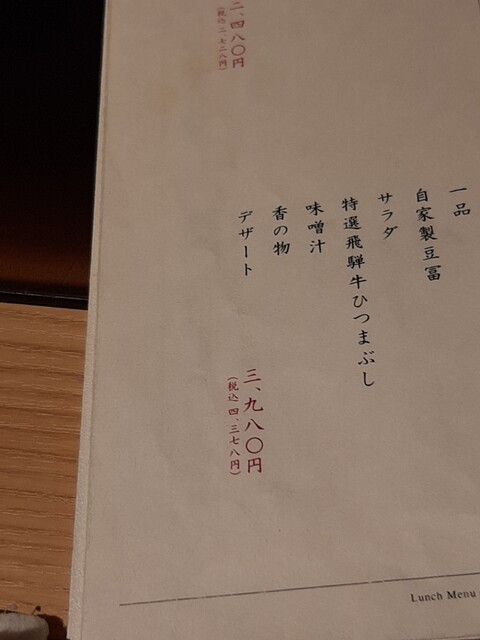 一品
自家製豆冨
サラダ
特選飛騨牛ひつまぶし
味噌汁
香の物
デザート
三、九八〇円
（税込 四、三七八円）
二、四八〇円
（税込 二、七二八円）
Lunch Menu